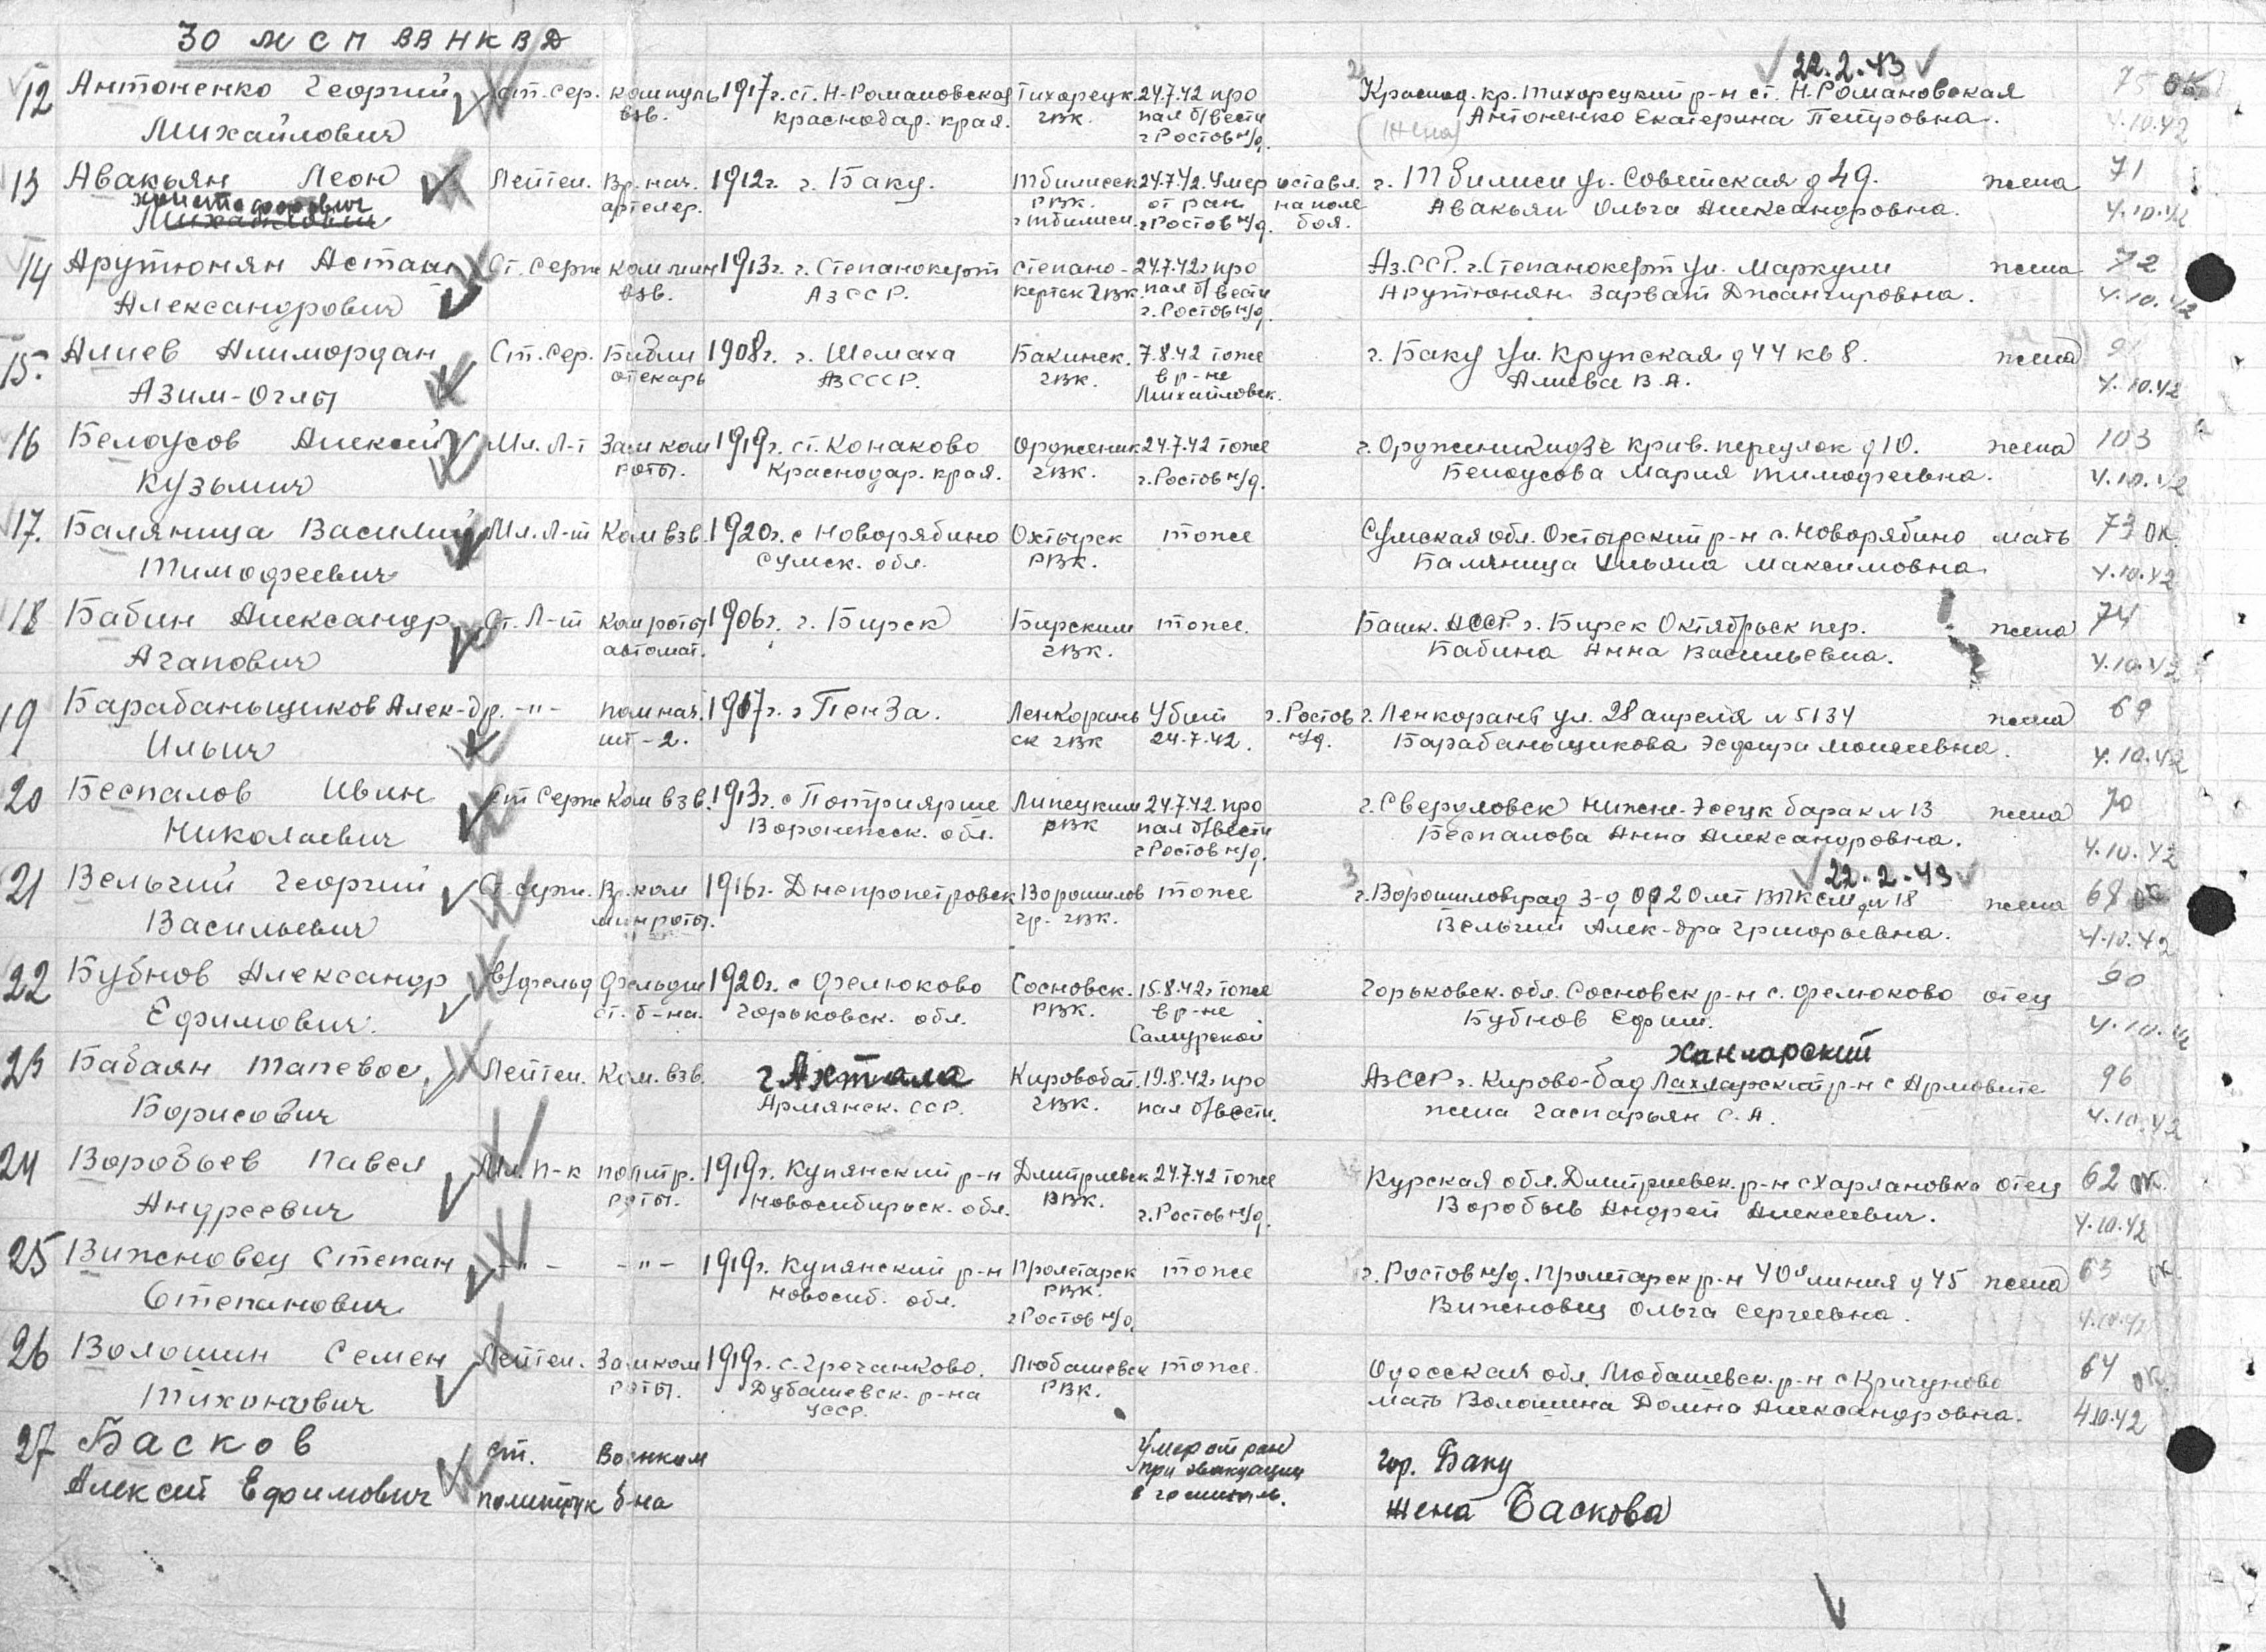 30 МСП ВВ НКВД
22.2.43
12 Антоненко Георгий Ст.сер. ком.пуль 1917г. ст. Н-Романовская Тихорецк. 24.7.42 про Краснод. кр. Тихорецкий р-н ст. Н.Романовская 75 ОК
Михайлович взв. Краснодар. края. ГВК. пал б/вести (жена) Антоненко Екатерина Петровна. 4.10.42
г Ростов н/д.
13 Авакьян Леон Лейтен. Вр.нач. 1912г. г. Баку. Тбилисск. 24.7.42. Умер оставл. г. Тбилиси ул. Советская д 49. жена 71
Христофорович артелер. РВК. от ран на поле Авакьян Ольга Александровна. 4.10.42
Михайлович г Тбилиси. г Ростов н/д. боя.
14 Арутюнян Астаан Ст. Серж ком мин 1913г. г. Степанокерт Степано- 24.7.42г про Аз.ССР. г. Степанокерт ул. Маркули жена 72
Александрович взв. АзССР. кертск ГВК. пал б/вести Арутюнян Зарват Джангировна. 4.10.42
г. Ростов н/д.
15. Алиев Алимордан Ст. Сер. Библи 1908г. г. Шемаха Бакинск. 7.8.42 тоже г. Баку ул. Крупская д 44 кв 8. жена
Азим-Оглы отекарь АзСССР. ГВК. в р-не Алиева В.А. 4.10.42
Михайловск.
16 Белоусов Алексей Мл. Л-т Зам ком 1919г. ст. Конаково Орджоник 24.7.42 тоже г. Орджоникидзе крив. переулок д 10. жена 103
Кузьмич роты. Краснодар. края. ГВК. г. Ростов н/д. Белоусова Мария Тимофеевна. 4.10.42
17. Баляница Василий Мл. Л-т Ком взв. 1920г. с Новорябино Охтырск тоже Сумская обл. Охтырский р-н с. Новорябино мать 73 ОК.
Тимофеевич Сумск. обл. РВК. Баляница Ульяна Максимовна. 4.10.42
18 Бабин Александр Ст. Л-т Ком роты 1906г. г. Бирск Бирским тоже. Башк. АССР. г. Бирск Октябрьск пер. жена 74
Агапович автомат. ГВК. Бабина Анна Васильевна. 4.10.42
19 Барабаньщиков Алек-др. -"- пом нач. 1917г. г Пенза. Ленкорань Убит г. Ростов г. Ленкорань ул. 28 апреля N 5134 жена 69
Ильич шт-2. ск ГВК 24.7.42. н/д. Барабаньщикова Эсфирь Моисеевна. 4.10.42
20 Беспалов Ивин Ст Серж Ком взв. 1913г. с Потриярше Липецким 24.7.42. про г. Свердловск Нижне-Эсецк барак N 13 жена 70
Николаевич Воронежск. обл. РВК пал б/вести Беспалова Анна Александровна. 4.10.42
г Ростов н/д.
22.2.43
21 Вельгий Георгий Ст серж. Вр.ком 1916г. Днепропетровск Ворошилов тоже 3 г. Ворошиловград 20 лет ВЛКСМ N 18 жена 68 ОК
Васильевич минроты. гр. ГВК. Вельгий Алек-дра Григорьевна. 4.10.42
22 Бубнов Александр в/фельд Фельдш 1920г. с Фелюково Сосновск. 15.8.42г тоже Горьковск. обл. Сосновск р-н с. Фелюково отец 90
Ефимович. ст. б-на. Горьковск. обл. РВК. в р-не Бубнов Ефим. 4.10.42
Самурской
Ханларский
23 Бабаян Тапевос Лейтен. Ком. взв. г. Ахтала Кировобат. 19.8.42г про АзССР г. Кирово-бад Лахларский р-н с Армовите 96
Борисович Армянск. ССР. ГВК. пал б/вести. жена Гаспарьян С. А. 4.10.42
24 Воробьев Павел Мл. п-к политр. 1919г. Купянский р-н Дмитриевск 24.7.42 тоже Курская обл. Дмитриевск. р-н с Харлановка отец 62 ОК.
Андреевич роты. Новосибирьск. обл. РВК. г. Ростов н/д. Воробьев Андрей Алексеевич. 4.10.42
25 Вижновец Степан -"- -"- 1919г. Купянский р-н Пролетарск тоже г. Ростов н/д. Пролетарск р-н 40я линия д 45 жена 63 ОК.
Степанович Новосиб. обл. РВК. Вижновец Ольга Сергеевна. 4.10.42
г Ростов н/д.
26 Волошин Семен Лейтен. Зам ком 1919г. с. Гречанково. Любашевск тоже. Одесская обл. Любашевск. р-н с Кричуново 64 ОК.
Тихонович роты. Дубашевск. р-на РВК. мать Волошина Домна Александровна. 4.10.42
УССР.
27 Басков Ст. Военком Умер от ран гор. Баку
Алексей Ефимович политрук б-на при эвакуации жена Баскова
в госпиталь.